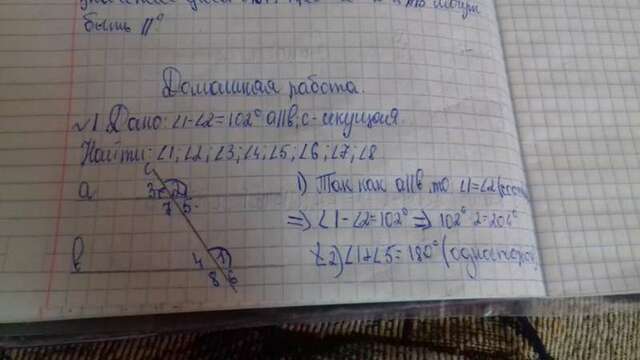 быть 11°
Домашняя работа.
№1 Дано: ∠1-∠2=102° a||b, c-секущая.
Найти: ∠1; ∠2; ∠3; ∠4; ∠5; ∠6; ∠7; ∠8
a
c
3 2
7 5
b
4 1
8 6
1) Так как a||b, то ∠1=∠2
=> ∠1-∠2=102° => 102° 2=204°
2) ∠1+∠5=180° (односторон